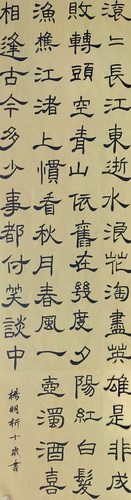 滾二長江東逝水浪花淘盡英雄是非成
敗轉頭空青山依舊在幾度夕陽紅白髮
漁樵江渚上慣看秋月春風一壺濁酒喜
相逢古今多少事都付笑談中
楊明析十歲書